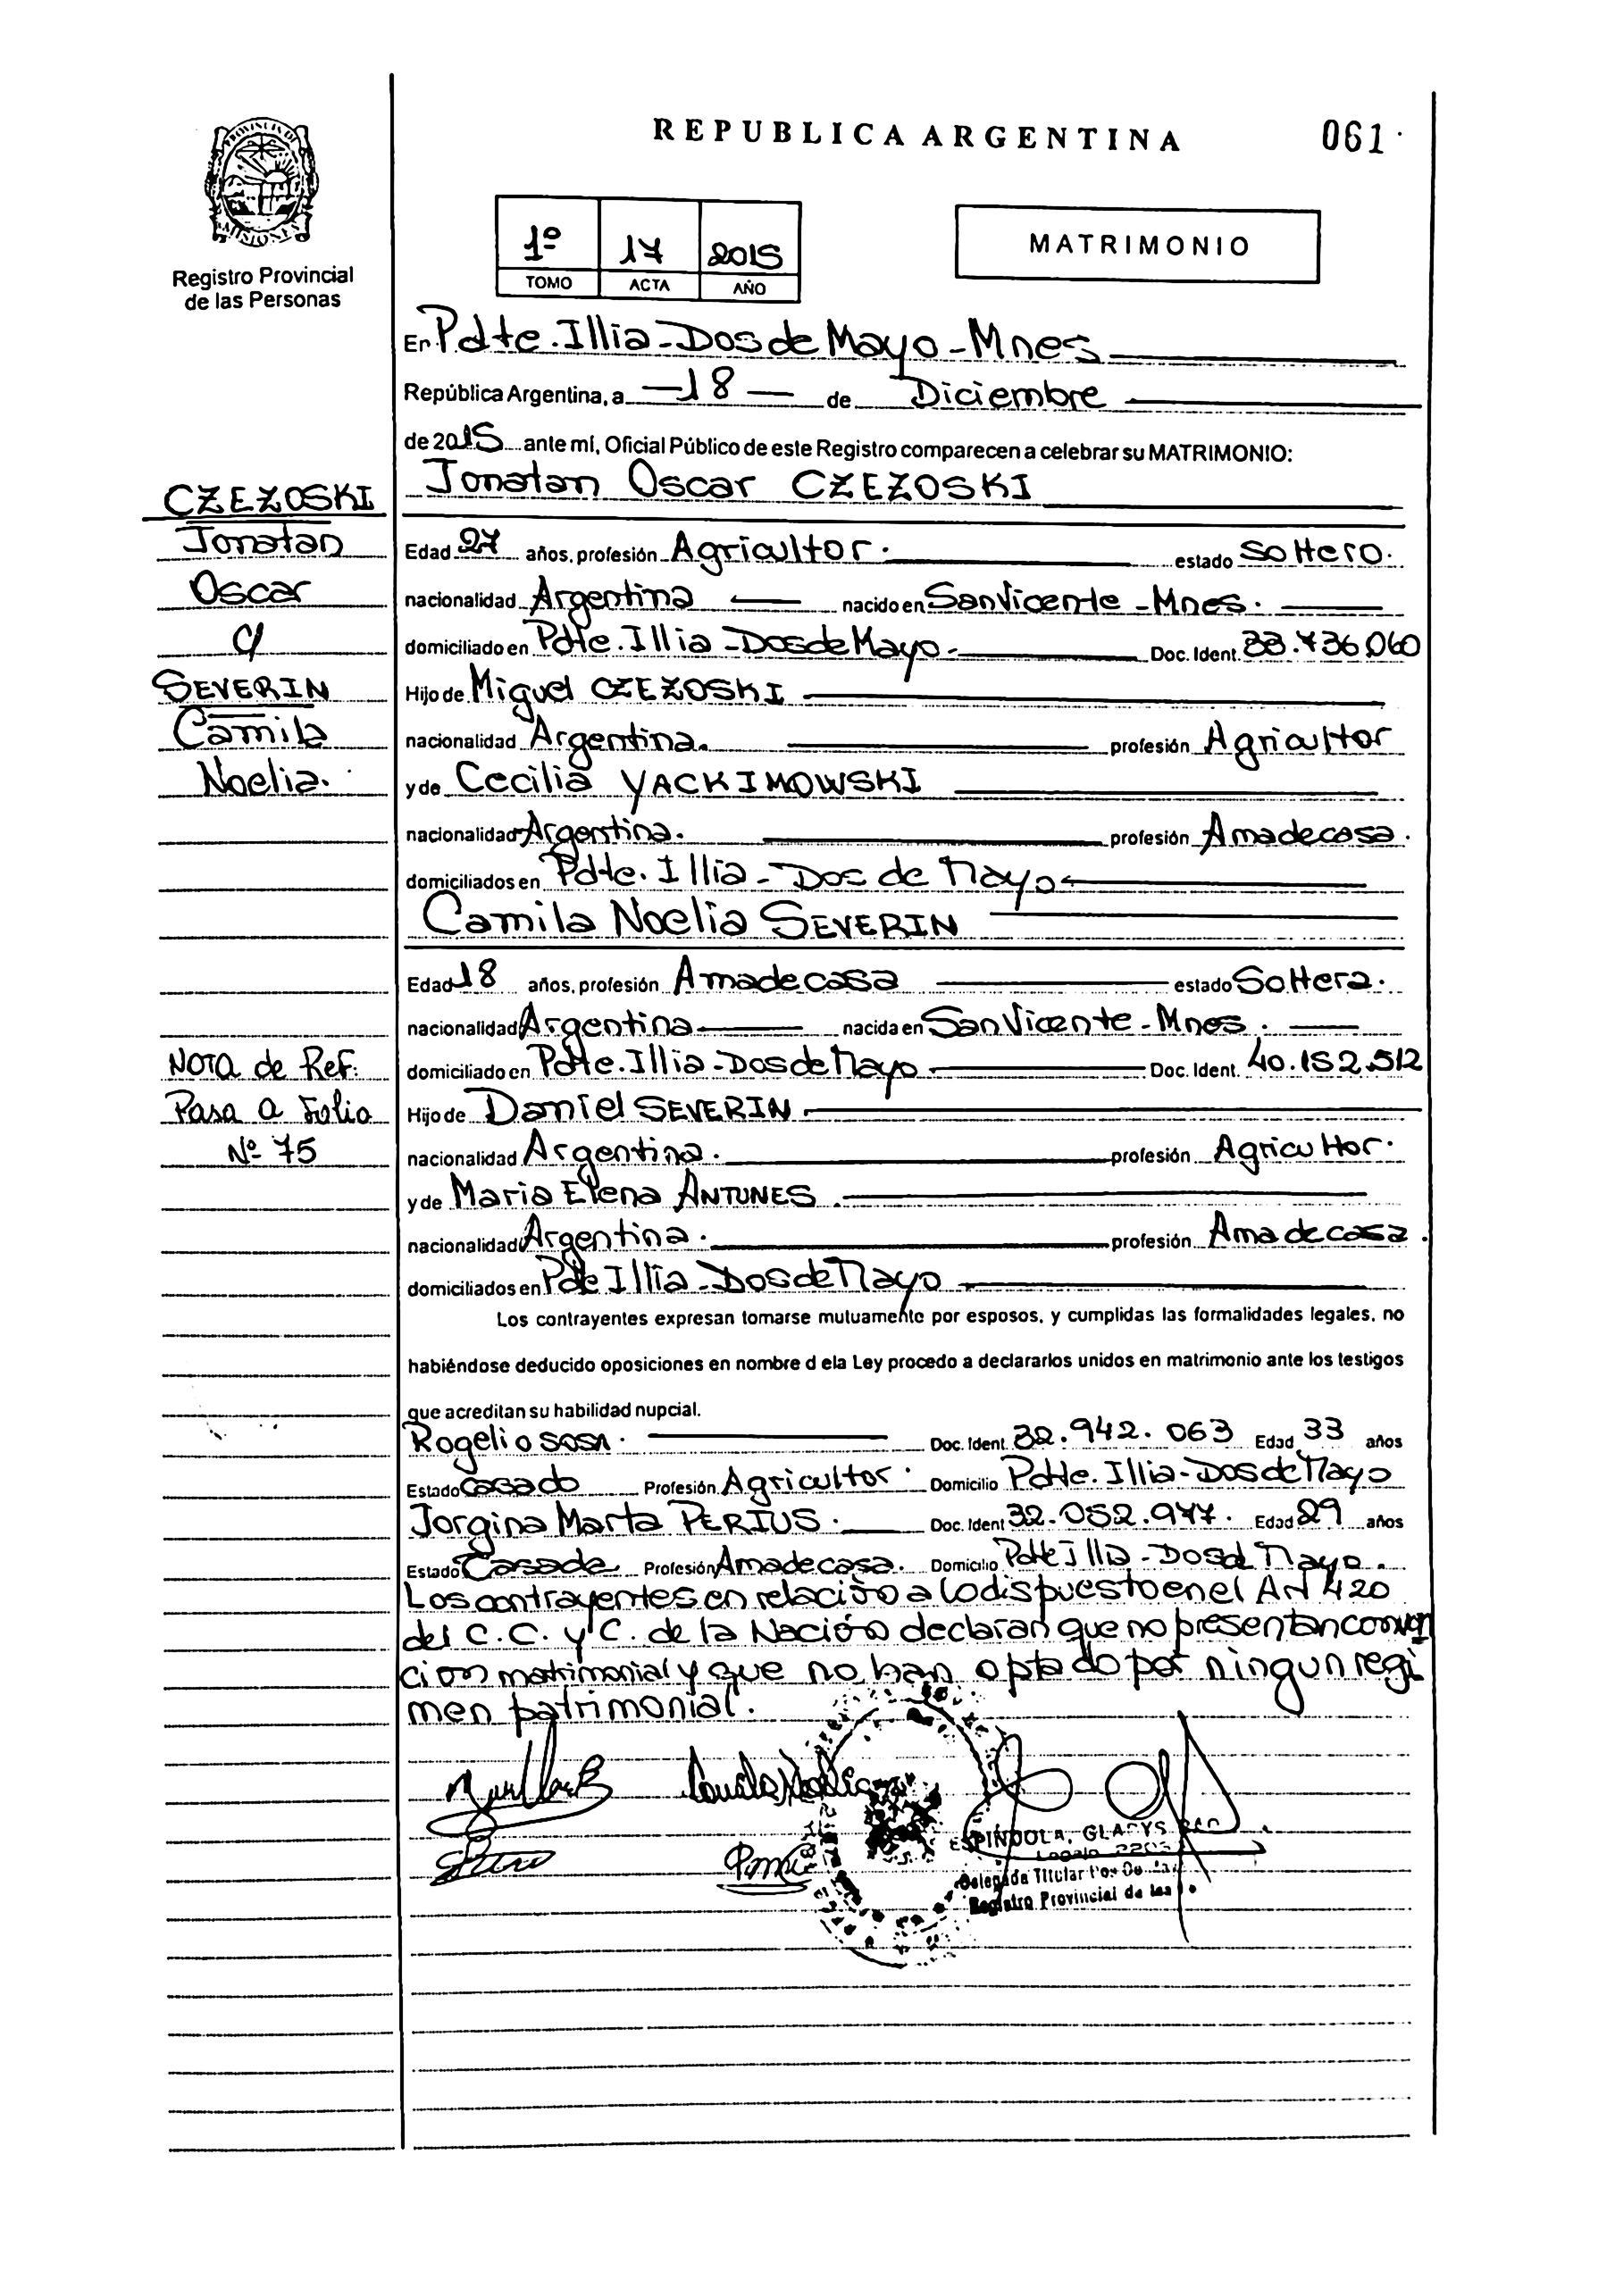 REPUBLICA ARGENTINA
061
PROVINCIA DE
MISIONES
Registro Provincial
de las Personas
1º 17 2015
TOMO ACTA AÑO
MATRIMONIO
En Pdte. Illia - Dos de Mayo - Mnes
República Argentina, a 18 de Diciembre
de 2015 ante mí, Oficial Público de este Registro comparecen a celebrar su MATRIMONIO:
Jonatan Oscar CZEZOSKI
CZEZOSKI
Jonatan
Oscar
c/
SEVERIN
Camila
Noelia.
Edad 27 años, profesión Agricultor. estado Soltero.
nacionalidad Argentina nacido en San Vicente - Mnes.
domiciliado en Pdte. Illia - Dos de Mayo - Doc. Ident. 33.736.060
Hijo de Miguel CZEZOSKI
nacionalidad Argentina. profesión Agricultor
y de Cecilia YACKIMOWSKI
nacionalidad Argentina. profesión Ama de casa.
domiciliados en Pdte. Illia - Dos de Mayo
Camila Noelia SEVERIN
Edad 18 años, profesión Ama de casa estado Soltera.
nacionalidad Argentina nacida en San Vicente - Mnes.
domiciliado en Pdte. Illia - Dos de Mayo Doc. Ident. 40.152.512
Hijo de Daniel SEVERIN
nacionalidad Argentina. profesión Agricultor.
y de Maria Elena ANTUNES.
nacionalidad Argentina. profesión Ama de casa.
domiciliados en Pdte Illia - Dos de Mayo
NOTA de Ref.
Pasa a Folio
Nº 75
Los contrayentes expresan tomarse mutuamente por esposos, y cumplidas las formalidades legales, no
habiéndose deducido oposiciones en nombre d ela Ley procedo a declararlos unidos en matrimonio ante los testigos
que acreditan su habilidad nupcial.
Rogelio SOSA. Doc. Ident. 32.942.063 Edad 33 años
Estado Casado Profesión Agricultor. Domicilio Pdte. Illia - Dos de Mayo
Jorgina Marta PERIUS. Doc. Ident 32.052.977. Edad 29 años
Estado Casada Profesión Ama de casa. Domicilio Pdte Illia - Dos d Mayo.
Los contrayentes en relación a lo dispuesto en el Art 420
del C.C. y C. de la Nación declaran que no presentan conven
cion matrimonial y que no han optado por ningun regi
men patrimonial.
ESPÍNDOLA, GLADYS
Delegada Titular
Registro Provincial de las